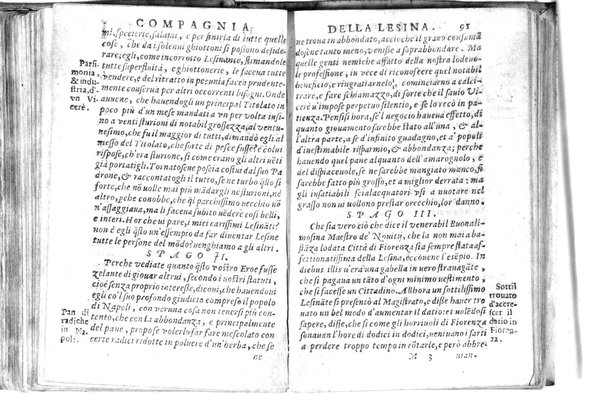 COMPAGNIA
ni, specierie, salami, e per finirla di tutte quelle
cose, che da i solenni ghiottoni si possono deside-
rare; egli, come incorrotto Lesinante, stimandole
tutte superfluità, e ghiottonerie, le facea tutte
vendere, e del ritratto in pecunia facea prudente-
mente conserua per altri occorrenti bisogni. Onde
auuene, che hauendogli un principal Titolato in
poco più d'un mese mandati a vn per volta infi-
no a venti sturioni di notabil grossezza; al ventu-
nesimo, che fu il maggior di tutti, dimandò egli al
messo del Titolato, che sorte di pesce fusse? e colui
rispose, ch'era sturione, si come erano gli altri
portatigli. Tornatosene poscia costui dal suo Pa-
drone, & raccontatogli il tutto, se ne turbò
forte, che nò uolle mai più mādargli ne sturioni, ne
altro, pche conobbe, che q̃l parchissimo vecchio nõ
n'assaggiaua, ma li facea subito uēdere così belli,
e interi. Hor che ui pare, i miei carissimi Lesināti?
non è egli q̃sto un'essempio da far diuentar Lesine
tutte le persone del mōdo? uenghiamo a gli altri.
Parsi-
monia
& indu-
stria, d'
vn Vi-
cerè.
SPAGO II.
Perche vediate quanto q̃sto vero Eroe fusse
zelante di giouar altrui, secondo i nostri statuti,
cioè senza proprio interesse, dicoui, che hauendoui
egli co'l suo profondo giudicio compreso il popolo
di Napoli, con veruna cosa non tenersi più con-
tento, che con la abbondanza, e principalmente
del pane, propose volerlo far fare mescolato con
certe radici ridotte in poluere d'un'herba, che se
Pan di
radiche
in Na-
poli.
ne
DELLA LESINA. 91
ne troua in abbondāza, accioche il grano consumā
dosene tanto meno, venisse a soprabbondare. Ma
quelle genti nemiche affatto della nostra lodeuo-
le professione, in vece di riconoscere quel notabil
beneficio, e ringratiarnelo, cominciarono a calci-
trare, e fare schiamazzo, di sorte che il sauio Vi-
cerè u'impose perpetuo silentio, e se lo recò in pa-
tienza. Pensisi hora, se'l negocio haueua effetto, di
quanto giouamento sarebbe stato all'una, & al-
l'altra parte, a se d'infinito guadagno, & al popolo
d'inestimabile risparmio, & abbondanza; perche
hauendo quel pane alquanto dell'amarognolo, e
del dispiaceuole, se ne sarebbe mangiato manco, si
sarebbe fatto più grosso, et a miglior derrata: ma
gli insatiabili scialacquatori vsi a nuotare nel
grasso non ui uollono prestar orecchio, lor danno.
SPAGO III.
Che sia vero ciò che dice il venerabil Buonali-
mosina Maestro de' Nouitij, che la non mai ba-
stāza lodata Città di Fiorenza sia sempre stata af-
fettionatissima della Lesina, eccoue l'esēpio. In
diebus illis u'era una gabella in uero strauagāte,
che si pagaua un tāto d'ogni minimo uestimento,
che si facesse un Cittadino. Alhora un sottilissimo
Lesināte si presentò al Magistrato, e disse hauer tro
uato un bel modo d'aumentar il datio: et uolēdosi
sapere, disse, che si come gli horriuoli di Fiorenza
sonauan l'hore di dodici in dodici, ueniuasi tanto
a perdere troppo tempo in cōtarle, e però abbre-
Sottil
trouato
d'accre-
scer il
datio in
Fioren-
za.
M 3
uian-